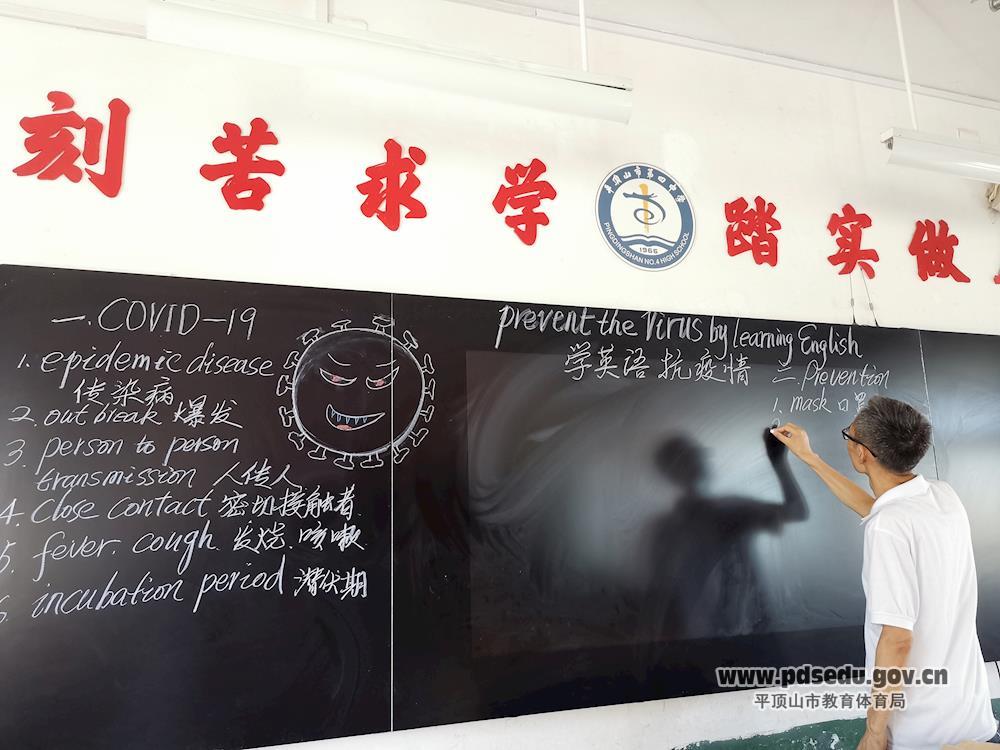 刻苦求学 踏实做
平顶山市第四中学
1966
PINGDINGSHAN NO.4 HIGH SCHOOL
一.COVID-19
1. epidemic disease
传染病
2. out break 爆发
3. person to person
transmission 人传人
4. close contact 密切接触者
5. fever. cough. 发烧.咳嗽
6. incubation period 潜伏期
prevent the Virus by learning English
学英语 抗疫情
二.Prevention
1. mask 口罩
www.pdsedu.gov.cn
平顶山市教育体育局